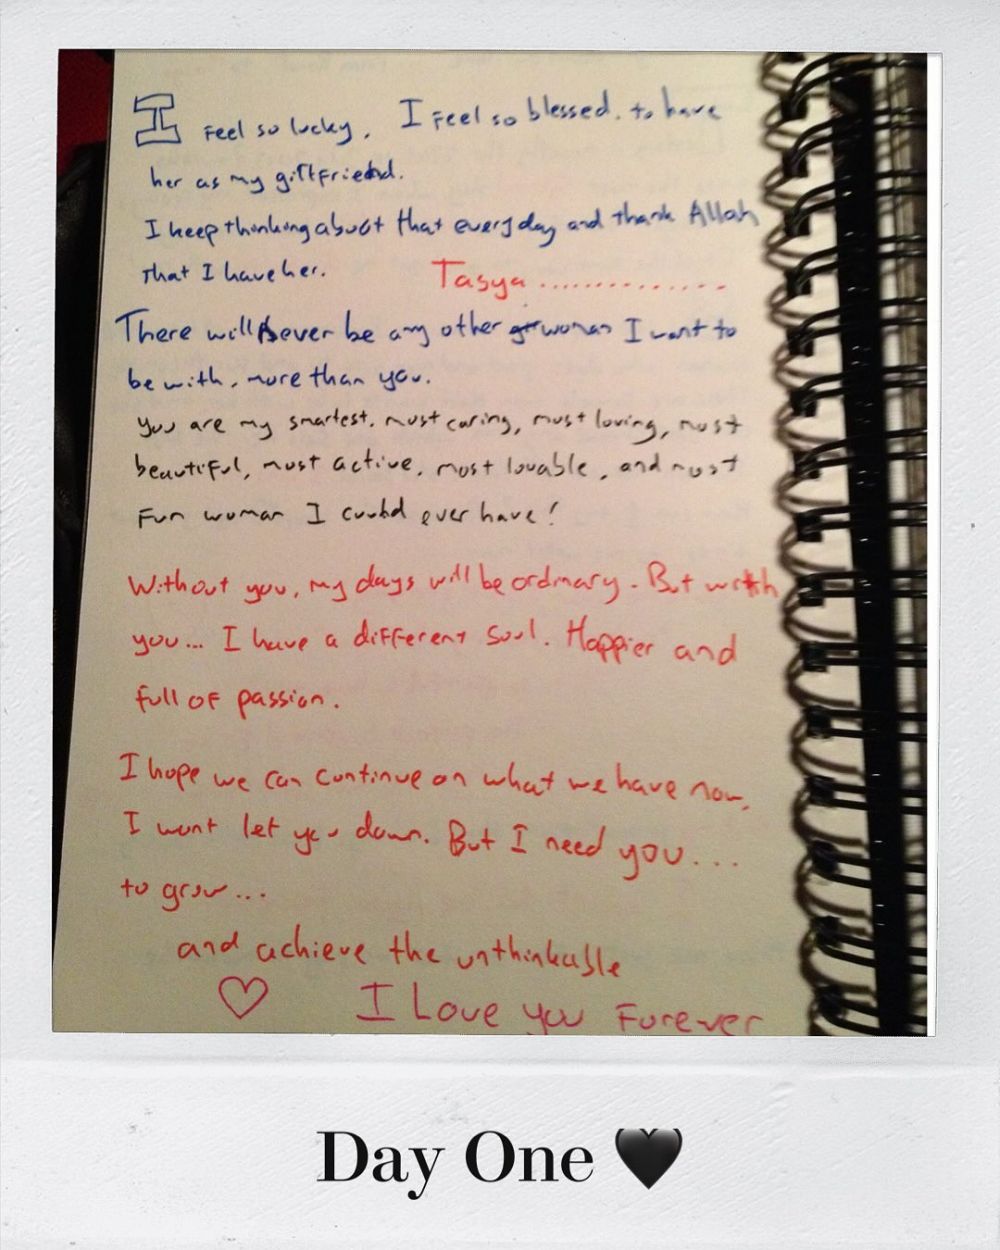 I feel so lucky. I feel so blessed. to have
her as my girlfriend.
I keep thinking about that everyday and thank Allah
that I have her. Tasya ..............
There will never be any other woman I want to
be with, more than you.
you are my smartest. most caring, most loving, most
beautiful, most active, most lovable, and most
fun woman I could ever have!
Without you, my days will be ordinary. But with
you... I have a different soul. Happier and
full of passion.
I hope we can continue on what we have now,
I wont let you down. But I need you...
to grow...
and achieve the unthinkable
♡ I Love you Forever
Day One 🖤